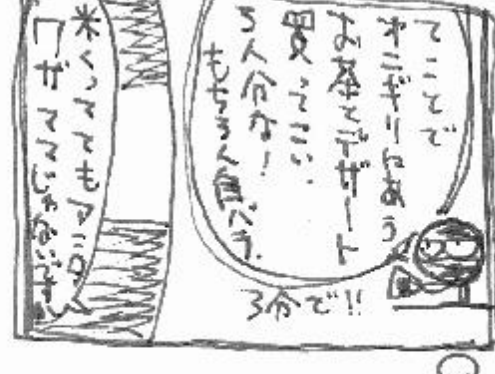 てことで
オニギリにあう
お茶とデザート
買ってこい.
5人分な!
もちろん自バラ.
3分で!!
米くってもアニロ
ワガママじゃないですか